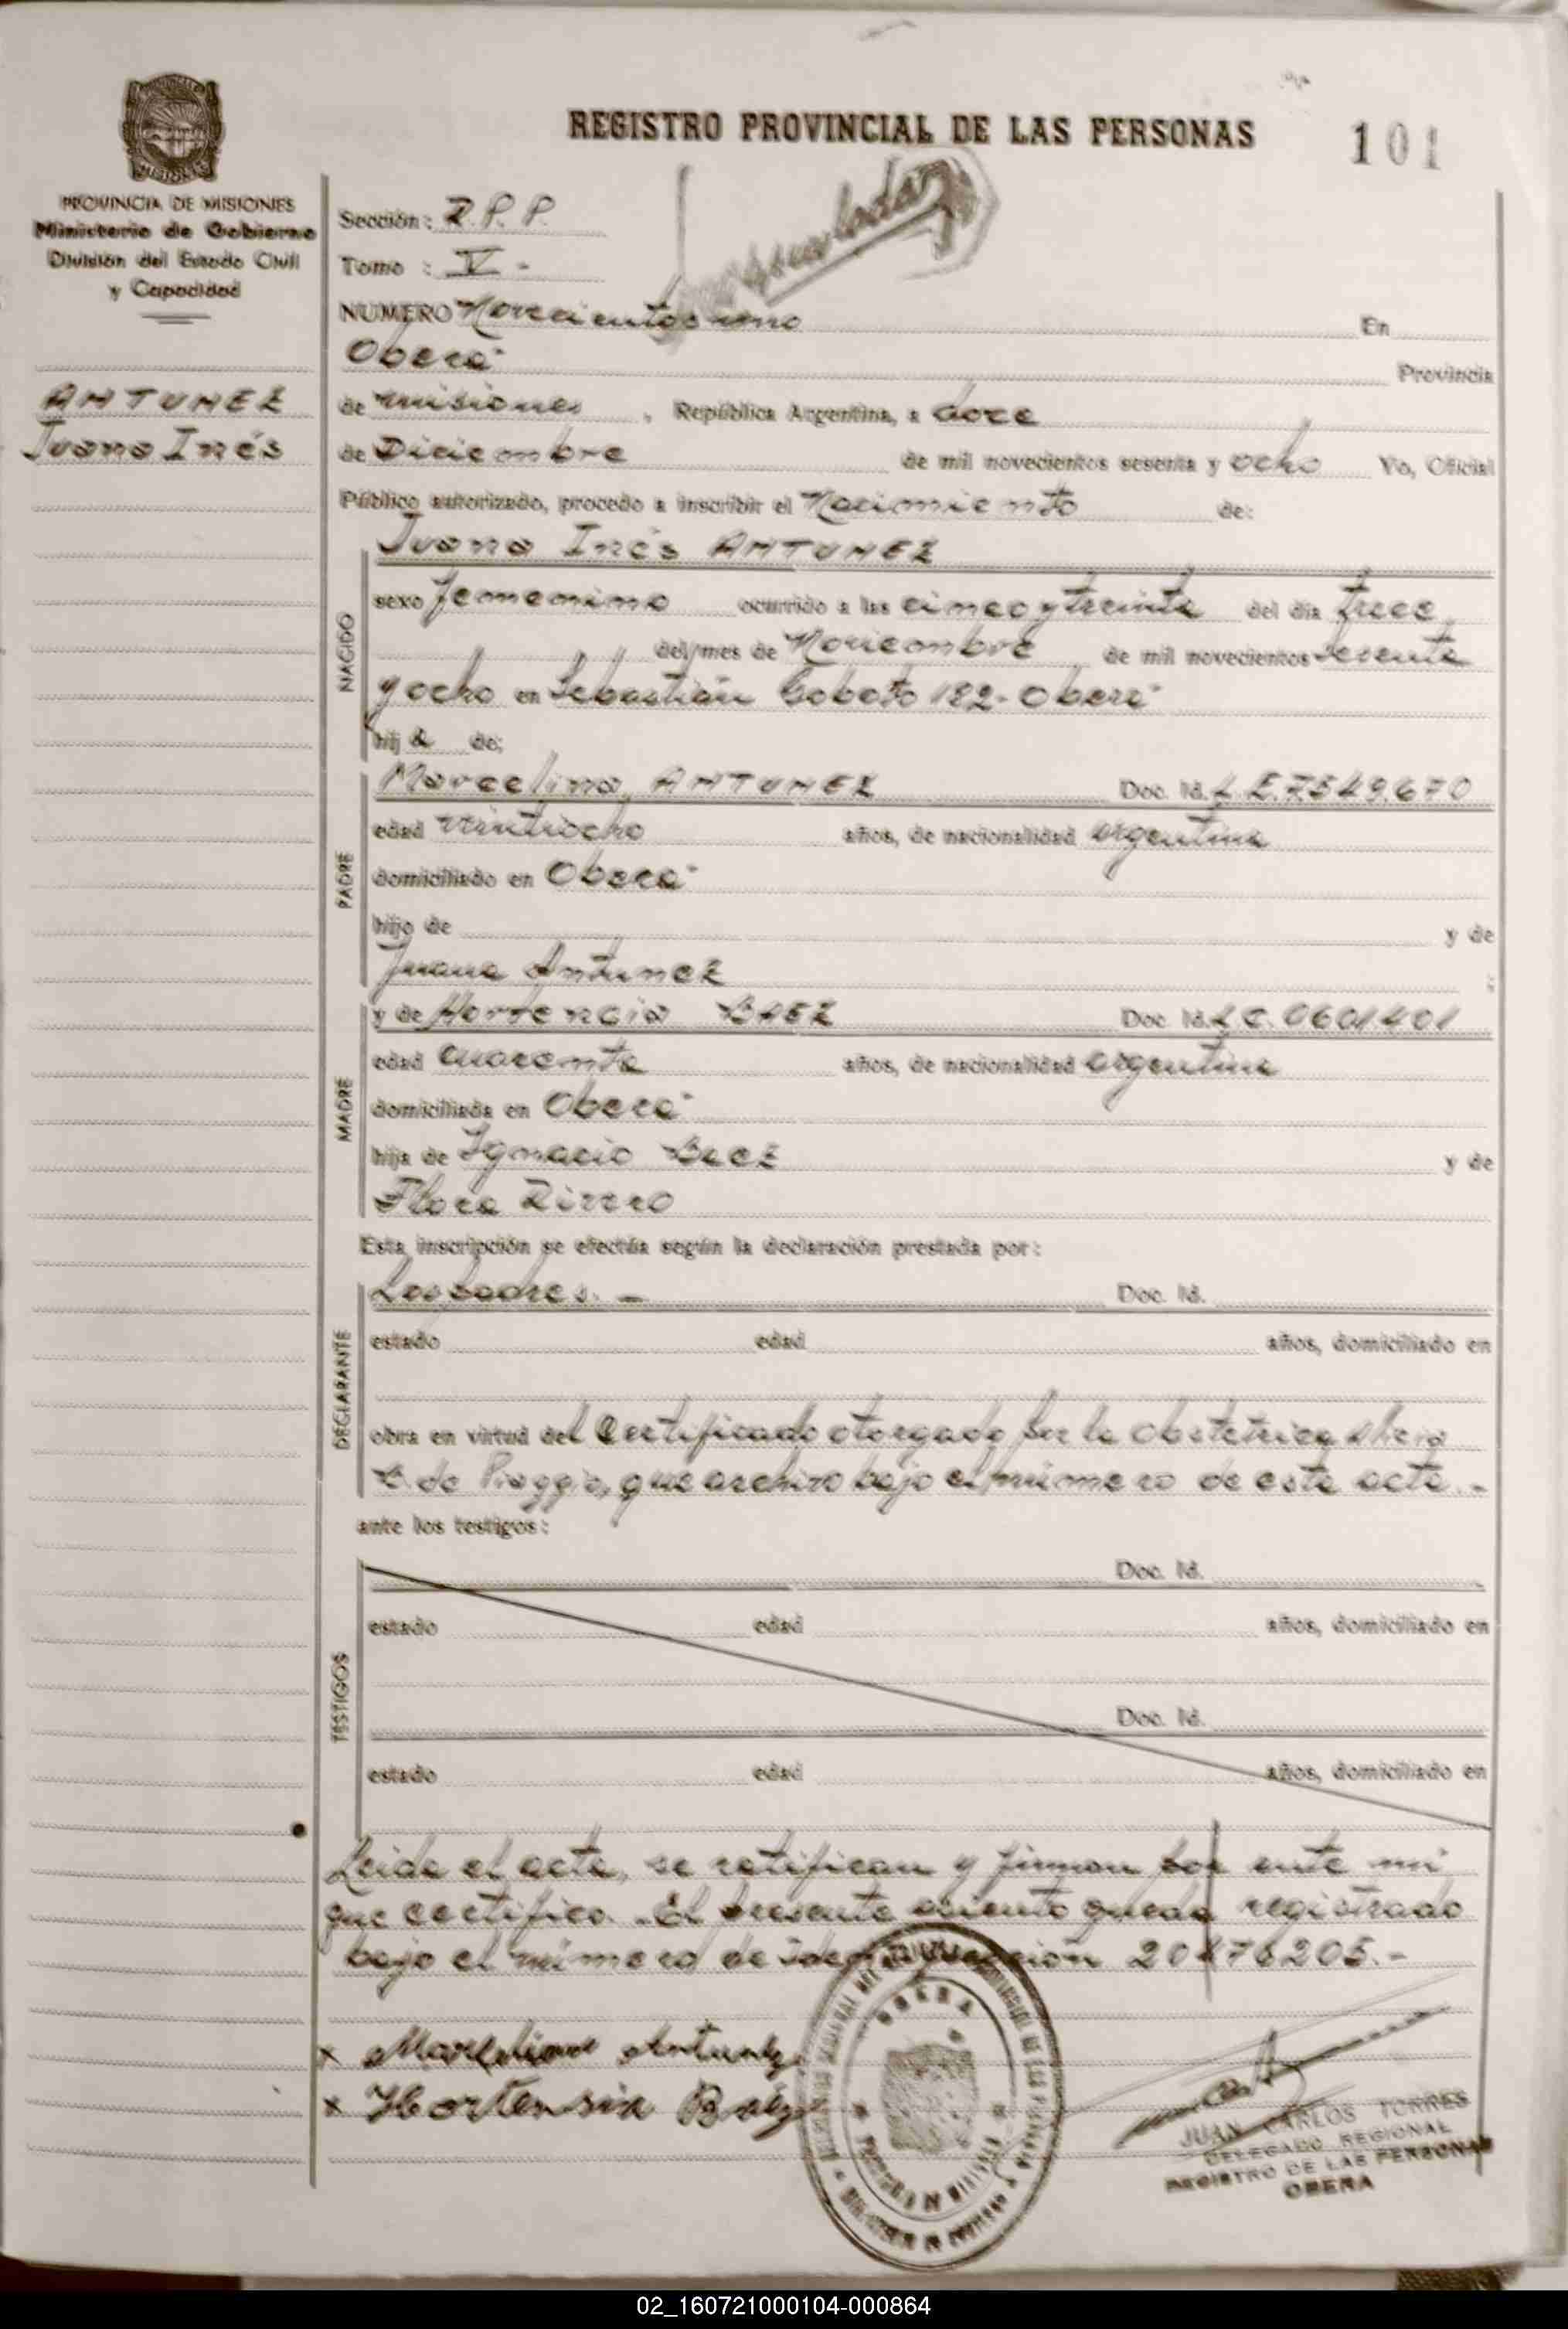 REGISTRO PROVINCIAL DE LAS PERSONAS
101
MISIONES
PROVINCIA DE MISIONES
Ministerio de Gobierno
División del Estado Civil
y Capacidad
ANTUNEZ
Juana Inés
Sección: R.P.P.
Tomo : V -
NUMERO Novecientos uno En
Oberá Provincia
de Misiones , República Argentina, a doce
de Diciembre de mil novecientos sesenta y ocho Yo, Oficial
Público autorizado, procedo a inscribir el Nacimiento de:
Juana Inés ANTUNEZ
NACIDO
sexo femenino ocurrido a las cinco y treinta del día trece
del mes de Noviembre de mil novecientos sesenta
y ocho en Sebastián Gaboto 182 - Oberá
hij a de:
PADRE
Marcelino ANTUNEZ Doc. Id. L.E. 7.549.670
edad veintiocho años, de nacionalidad argentina
domiciliado en Oberá
hijo de y de
Juana Antunez ;
MADRE
y de Hortencia BAEZ Doc. Id. L.C. 0601401
edad cuarenta años, de nacionalidad argentina
domiciliada en Oberá
hija de Ignacio Baez y de
Flora
Esta inscripción se efectúa según la declaración prestada por:
DECLARANTE
Los padres. - Doc. Id.
estado edad años, domiciliado en
obra en virtud del Certificado otorgado por la obstetrica Alicia
B. de Piaggio, que archivo bajo el número de este acta. -
ante los testigos:
TESTIGOS
Doc. Id.
estado edad años, domiciliado en
Doc. Id.
estado edad años, domiciliado en
Leida el acta, se ratifican y firman por ante mi
que certifico. El presente asiento queda registrado
bajo el número de 20476205.-
x Marcelino Antunez
x Hortensia Baez
OBERA
PROVINCIA DE MISIONES
JUAN CARLOS TORRES
DELEGADO REGIONAL
REGISTRO DE LAS PERSONAS
OBERA
02_160721000104-000864